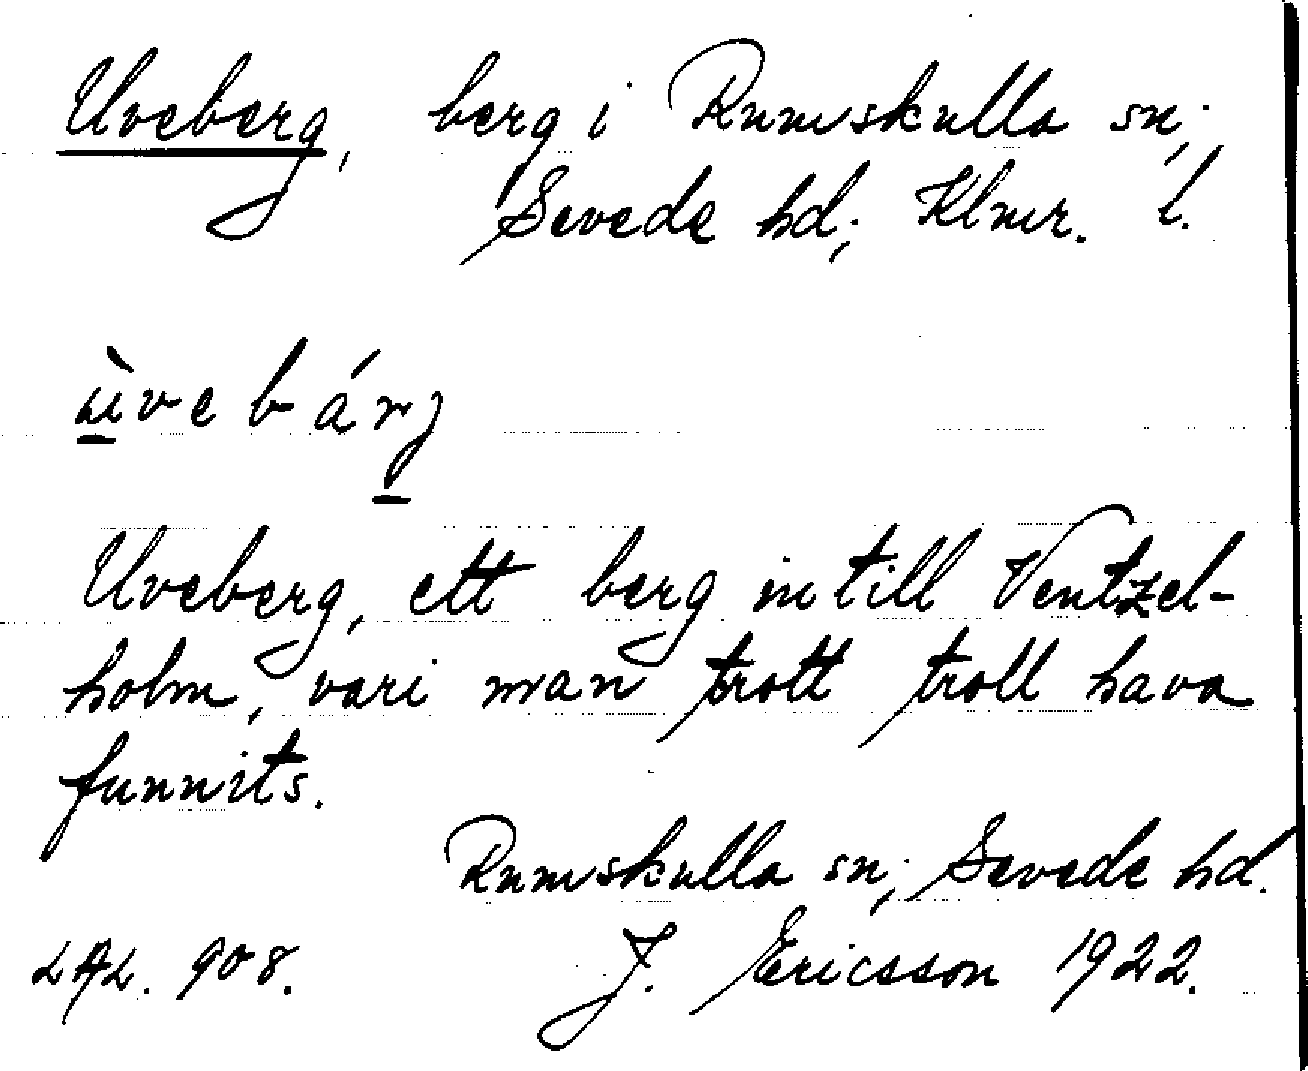 Uveberg, berg i Rumskulla sn;
Sevede hd; Klmr. l.
ùvebárg
Uveberg, ett berg intill Ventzel-
holm, vari man trott troll hava
funnits.
Rumskulla sn; Sevede hd.
LAL. 908. J. Ericsson 1922.